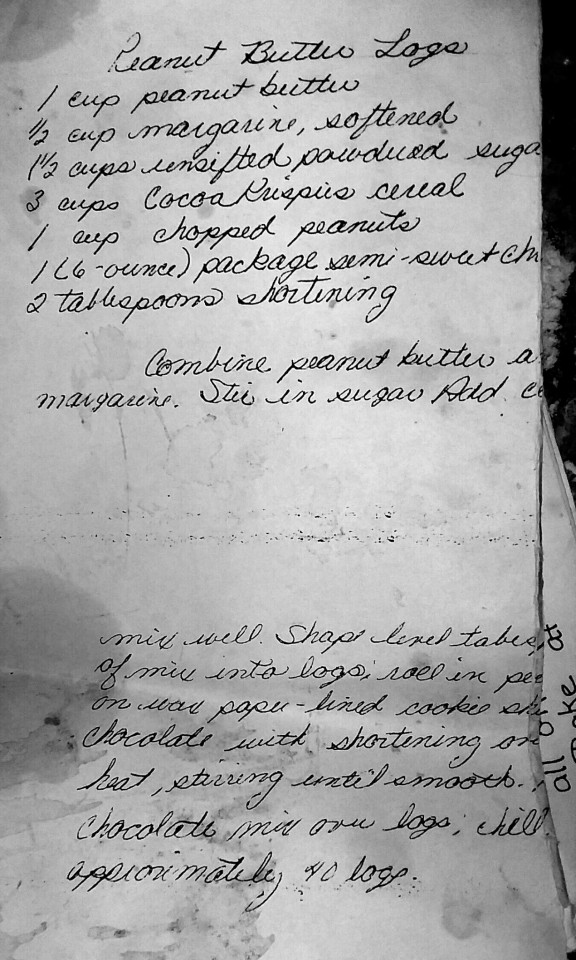 Peanut Butter Logs
1 cup peanut butter
1/2 cup margarine, softened
1 1/2 cups unsifted powdured suga
3 cups Cocoa Krispies cereal
1 cup chopped peanuts
1 (6-ounce) package semi-sweet ch
2 tablespoons shortening
Combine peanut butter a
margarine. Stir in sugar Add ce
mix well. Shape level tables
of mix into logs; roll in pe
on wax paper-lined cookie sh
chocolate with shortening ov
heat, stirring until smooth.
chocolate mix over logs; chill.
approximately 40 logs.
all